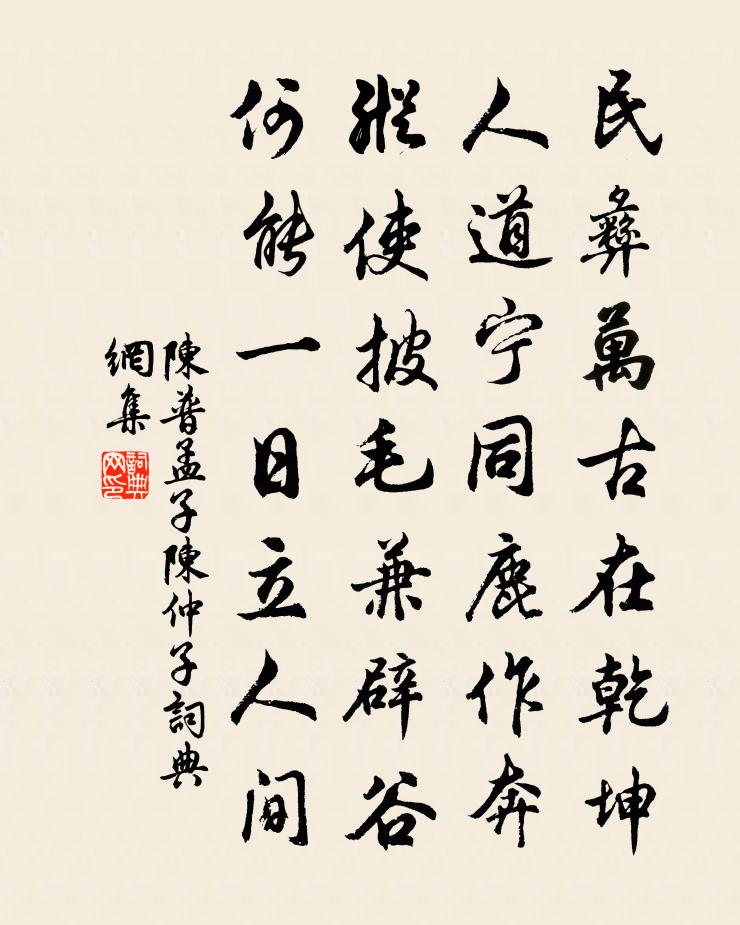 民彝萬古在乾坤
人道宁同鹿作奔
縱使披毛兼辟谷
何能一日立人间
陳普孟子陳仲子詞典
網集
詞典
网印